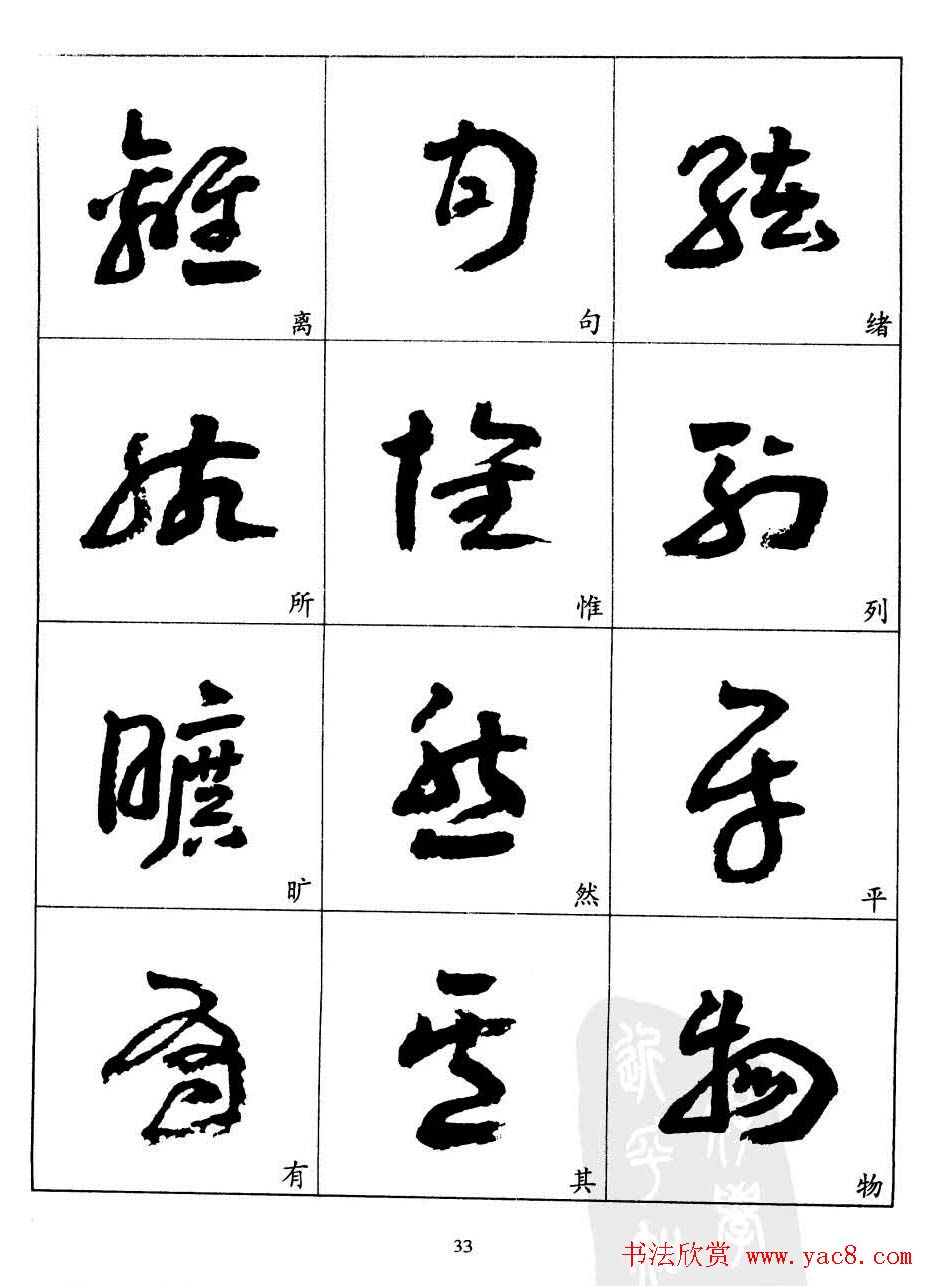 離 句 緒
离 句 绪
所 惟 列
所 惟 列
曠 然 平
旷 然 平
有 其 物
有 其 物
33
书法欣赏 www.yac8.com